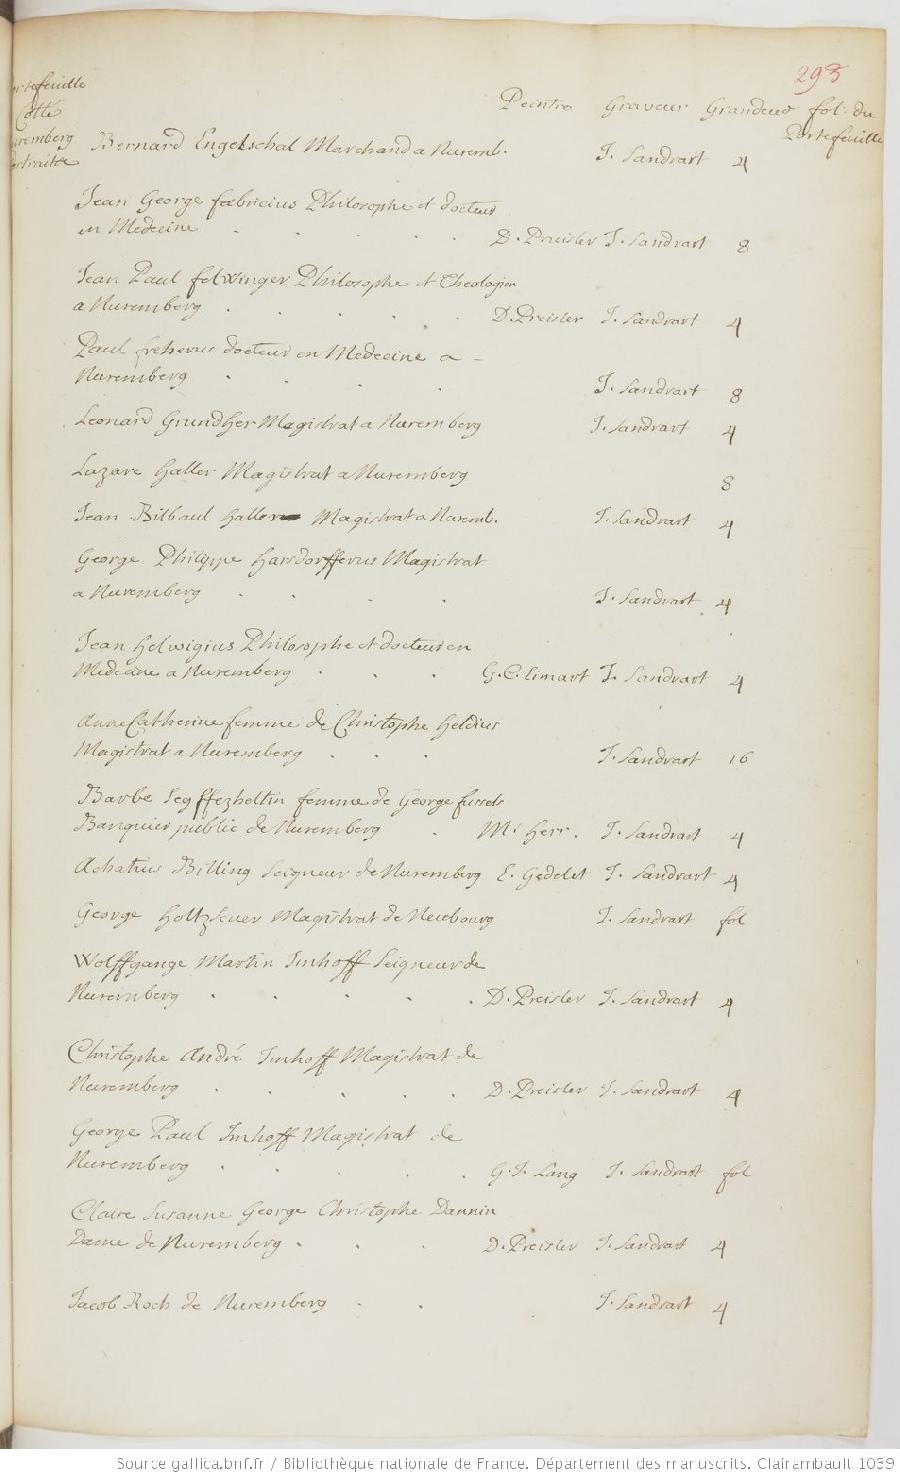 293
Peintre Graveur Grandeur fol. du Portefeuille
Cotte
Bernard Engelschal Marchand a Nuremb. J. Sandrart 4
Jean George fabricius Philosophe et docteur
en Medecine D. Preisler J. Sandrart 8
Jean Paul felwinger Philosophe et Theologien
a Nuremberg D. Preisler J. Sandrart 4
Paul freherus docteur en Medecine a -
Nuremberg J. Sandrart 8
Leonard Grundher Magistrat a Nuremberg J. Sandrart 4
Lazare Haller Magistrat a Nuremberg 8
Jean Bilbaul Haller Magistrat a Nuremb. J. Sandrart 4
George Philippe Harsdorfferus Magistrat
a Nuremberg J. Sandrart 4
Jean Helwigius Philosophe et docteur en
Medecine a Nuremberg G. C. Eimart J. Sandrart 4
Anne Catherine femme de Christophe Heldius
Magistrat a Nuremberg J. Sandrart 16
Barbe femme de George
Banquier public de Nuremberg Mr. Herr. J. Sandrart 4
Achatius Billing Seigneur de Nuremberg E. Gedelet J. Sandrart 4
George Holtzscuer Magistrat de Neubourg J. Sandrart fol
Wolffgange Martin Imhoff Seigneur de
Nuremberg D. Preisler J. Sandrart 4
Christophe André Imhoff Magistrat de
Nuremberg D. Preisler J. Sandrart 4
George Paul Imhoff Magistrat de
Nuremberg G. J. Lang J. Sandrart fol
Claire Susanne George Christophe Dannin
Dame de Nuremberg D. Preisler J. Sandrart 4
Jacob Koch de Nuremberg J. Sandrart 4
Source gallica.bnf.fr / Bibliothèque nationale de France. Département des manuscrits. Clairambault 1039